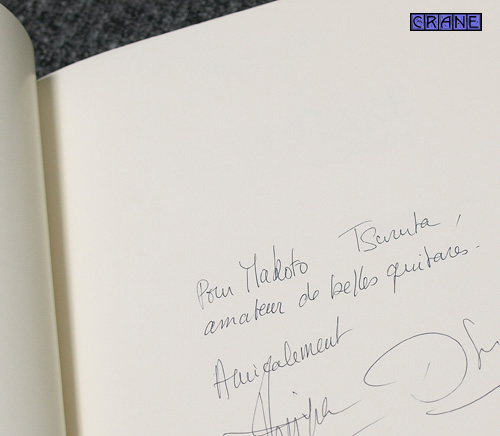 CRANE
Pour Makoto Tsuruta,
amateur de belles guitares.
Amicalement